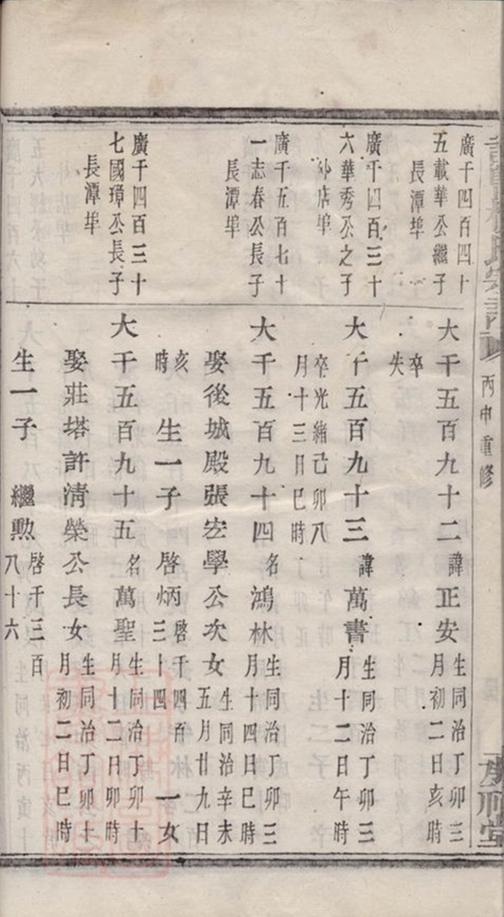 廣千四百四十
五載華公繼子
長潭埠
大千五百九十二 諱正安 生同治丁卯三
月初二日亥時
卒失
廣千四百三十
六華秀公之子
外店埠
大千五百九十三 諱萬書 生同治丁卯三
月十二日午時
卒光緒己卯八
月十三日巳時
廣千五百七十
一志春公長子
長潭埠
大千五百九十四 名鴻林 生同治丁卯三
月十四日巳時
娶後城殿張宏學公次女 生同治辛未
五月廿九日
亥時 生一子 啓炳 啓千四百
三十四 一女
廣千四百三十
七國璋公長子
長潭埠
大千五百九十五 名萬聖 生同治丁卯十
月十二日卯時
娶莊塔許清榮公長女 生同治丁卯十
月初二日巳時
生一子 繼勲 啓千三百
八十六
丙申重修